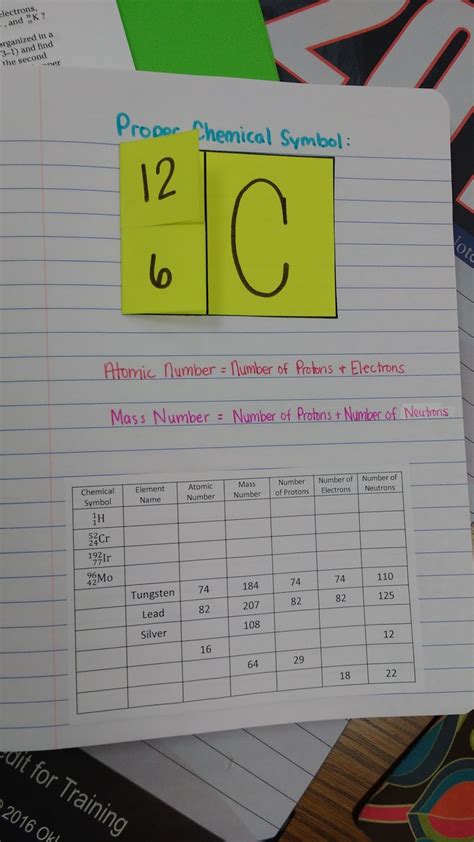 electrons,
, and ¹⁹₉K ?
organized in a
3–1) and find
the second
Proper Chemical Symbol:
12
6
C
Atomic Number = Number of Protons + Electrons
Mass Number = Number of Protons + Number of Neutrons
Chemical Symbol Element Name Atomic Number Mass Number Number of Protons Number of Electrons Number of Neutrons
¹₁H
⁵²₂₄Cr
¹⁹²₇₇Ir
⁹⁶₄₂Mo
Tungsten 74 184 74 74 110
Lead 82 207 82 82 125
Silver 108
16 12
64 29
18 22
dit for Training
2016 Okl